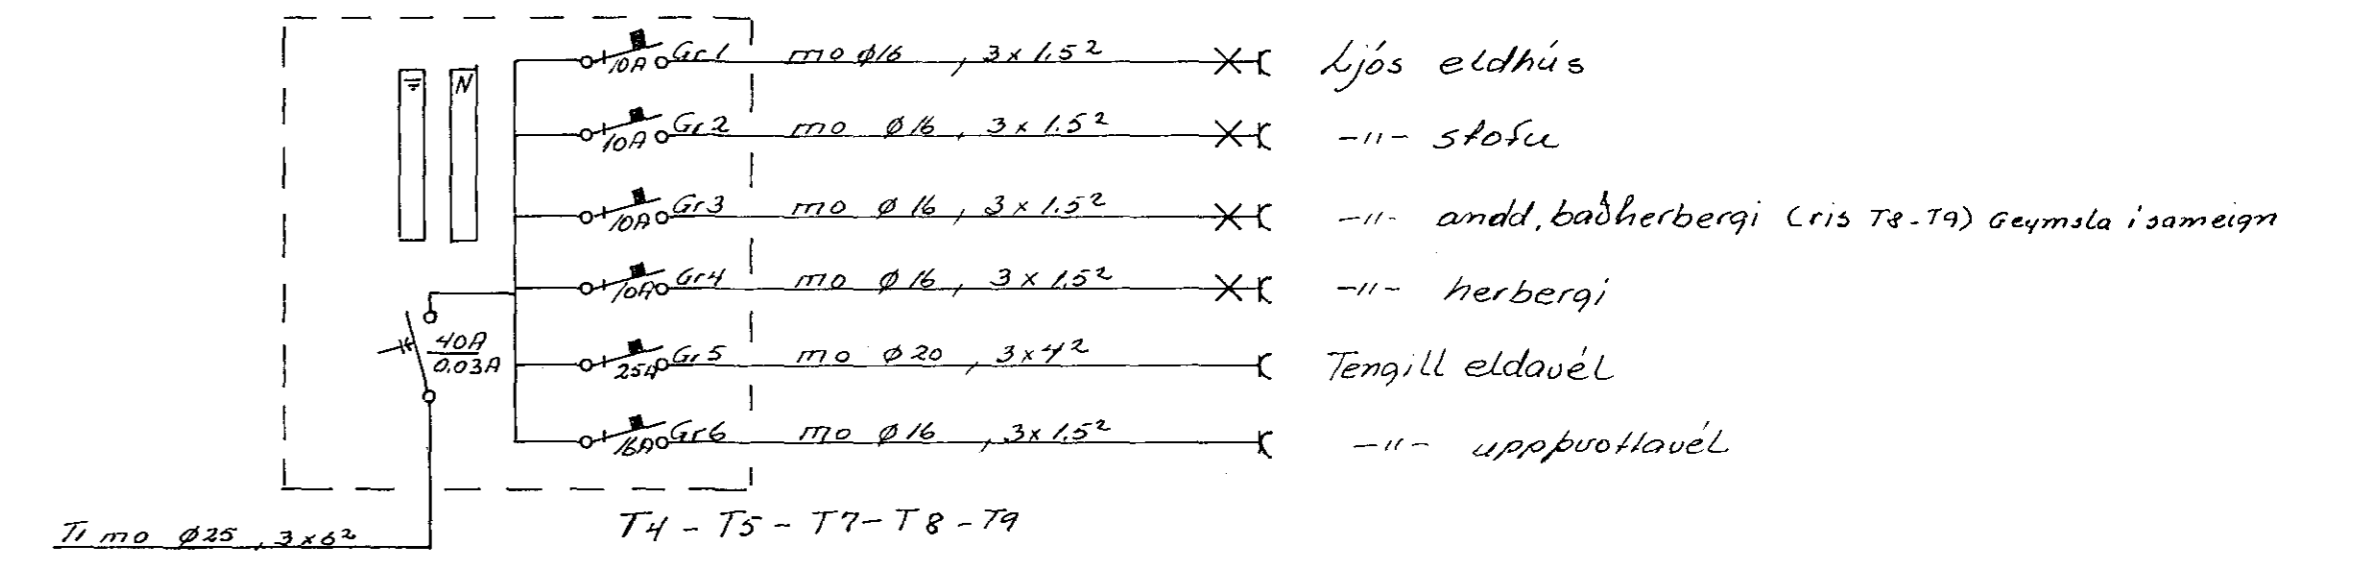 10A Gr1 mo ø16, 3x1.5² Ljós eldhús
N
10A Gr2 mo ø16, 3x1.5² -〃- stofu
10A Gr3 mo ø16, 3x1.5² -〃- andd, baðherbergi (ris T8-T9) Geymsla í sameign
10A Gr4 mo ø16, 3x1.5² -〃- herbergi
40A
0.03A
25A Gr5 mo ø20, 3x4² Tengill eldavél
16A Gr6 mo ø16, 3x1.5² -〃- uppþvottavél
T4 - T5 - T7 - T8 - T9
Ti mo ø25, 3x6²